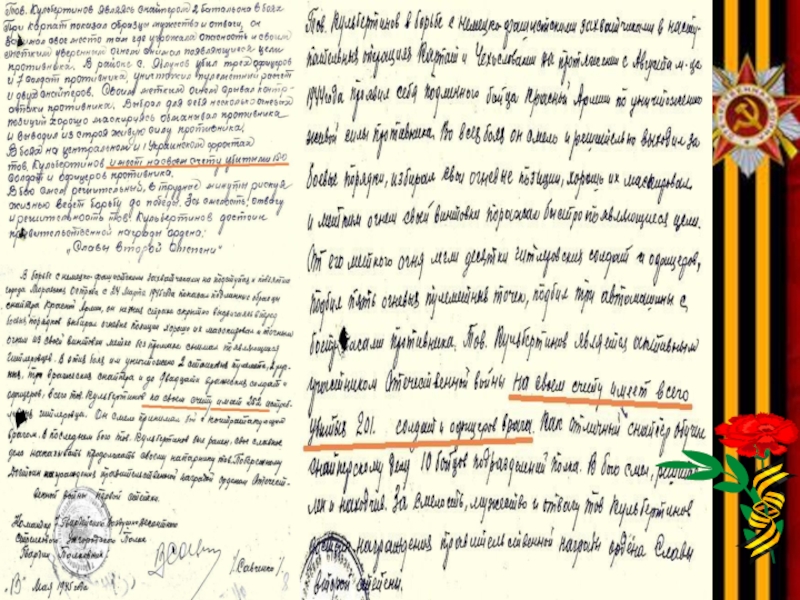 Тов. Кульбертинов являясь снайпером 2 батольона в боях
При карпат показал образцы мужества и отвагу, он
занимал свое место там где угрожала опасность и своим
метким уверенным огнем снимал появляющиеся цели
противника. В районе с. убил трех офицеров
и 7 солдат противника, уничтожил пулеметный расчет
и двух снайперов. Своим метким огнем срывал контр-
атаки противника. Выбрал для себя несколько огневых
позиций хорошо маскируясь обманывал противника
и выводил из строя живую силу противника.
В боях на центральном и 1 Украинском фронтах
тов. Кульбертинов имеет на своем счету убитыми 150
солдат и офицеров противника.
В бою смел решительный, в трудные минуты рискуя
жизнью ведет борьбу до победы. За смелость, отвагу
и решительность тов. Кульбертинов достоин
правительственной награды ордена:
„Славы Второй Степени"
В борьбе с немецко-фашистскими захватчиками на подступах и во взятие
города Моравска Острава с 24 марта 1945 года показал подлинные образцы
снайпера Красной Армии, он не жалея страха скрытно выдвигался вперед
боевых порядков выбирал огневые позиции хорошо их маскировал и точным
огнем из своей винтовки метко без промаха снимал появляющихся
гитлеровцев. В этих боях он уничтожил 2 станковых пулемета,
три вражеских снайпера и до двадцати вражеских солдат и
офицеров, всего тов Кульбертинов на своем счету имеет 252 истреб-
ленных гитлеровца. Он смело принимал бой с контратакующим
врагом. В последнем бою тов. Кульбертинов был ранен. Свое славное
дело наказывал продолжать своему напарнику тов.
Достоин награждения правительственной наградой орденом Отечест-
венной войны первой степени.
Командир 7 Гвардейского Воздушно-десантного
Стрелкового Полка
Гвардии Полковник
/Савченко/
„ " Мая 1945 года
Тов. Кульбертинов в борьбе с немецко-фашистскими захватчиками в насту-
пательных операциях Карпат и Чехословакии на протяжении с Августа м-ца
1944 года проявил себя подлинного бойца Красной Армии по уничтожению
живой силы противника. Во всех боях он смело и решительно выходил за
боевые порядки, избирал свои огневые позиции, хорошо их маскировал
и метким огнем своей винтовки поражал быстропоявляющиеся цели.
От его меткого огня легли десятки гитлеровских солдат и офицеров,
подбил пять огневых пулеметных точек, подбил три автомашины с
боеприпасами противника. Тов. Кульбертинов является активным
участником Отечественной войны на своем счету имеет всего
убитых 201 солдат и офицеров врага. Как отличный снайпер обучил
снайперскому делу 10 бойцов подразделений полка. В бою смел, решите-
лен и находчив. За смелость, мужество и отвагу тов Кульбертинов
достоин награждения правительственной награды ордена Славы
второй степени.